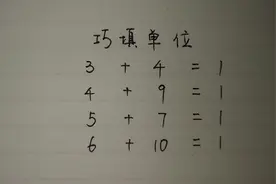 巧填单位
3 + 4 = 1
4 + 9 = 1
5 + 7 = 1
6 + 10 = 1